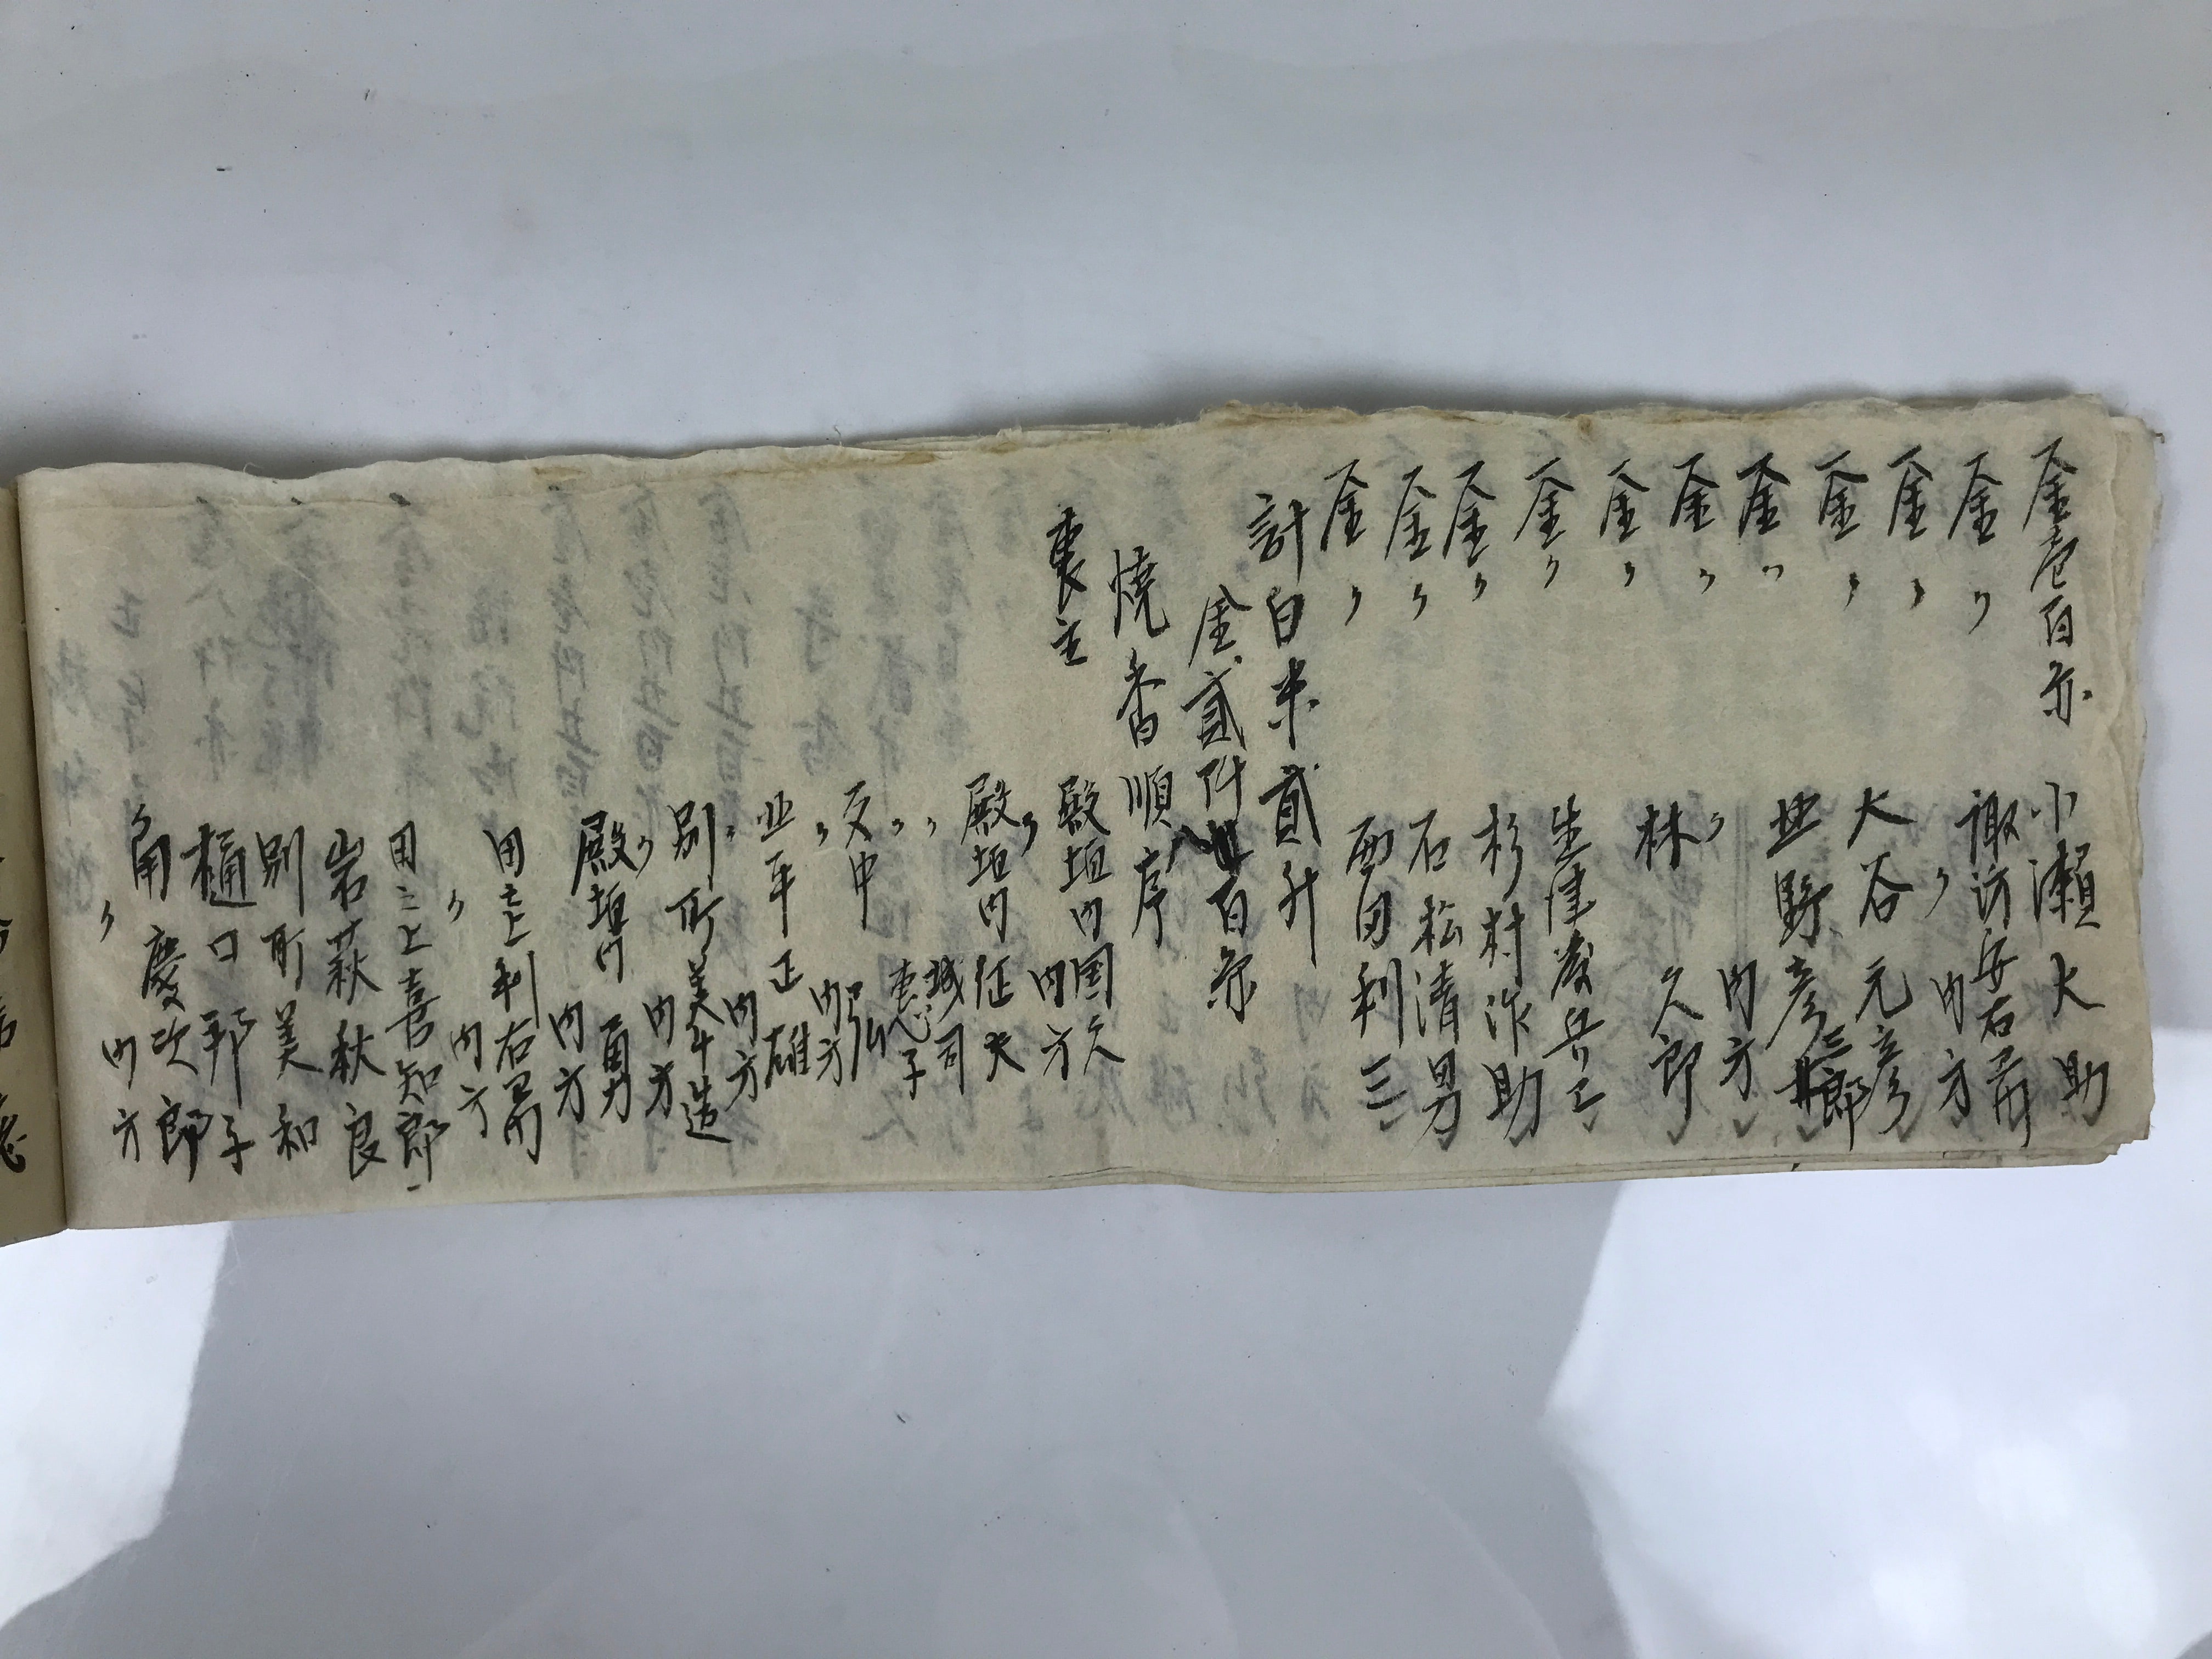 金壱百円 小瀬大助
金〃 諏訪安右ヱ門
金〃 〃 内方
金〃 大谷元彦
金〃 北野彦三郎
金〃 〃 内方
金〃 林久郎
金〃 生津慶兵ヱ
金〃 杉村作助
金〃 石松清男
金〃 西田利三
計白米貳升
金貳阡 百円
焼香順序
喪主 殿垣内国久
〃 内方
殿垣内征夫
〃 城司
〃 恵子
田中 弘
〃 内方
北平正雄
〃 内方
別所美斗造
〃 内方
殿垣内 勇
内方
田之上利右ヱ門
〃 内方
田之上喜知郎
岩萩秋良
別所美和
樋口邦子
角慶次郎
〃 内方